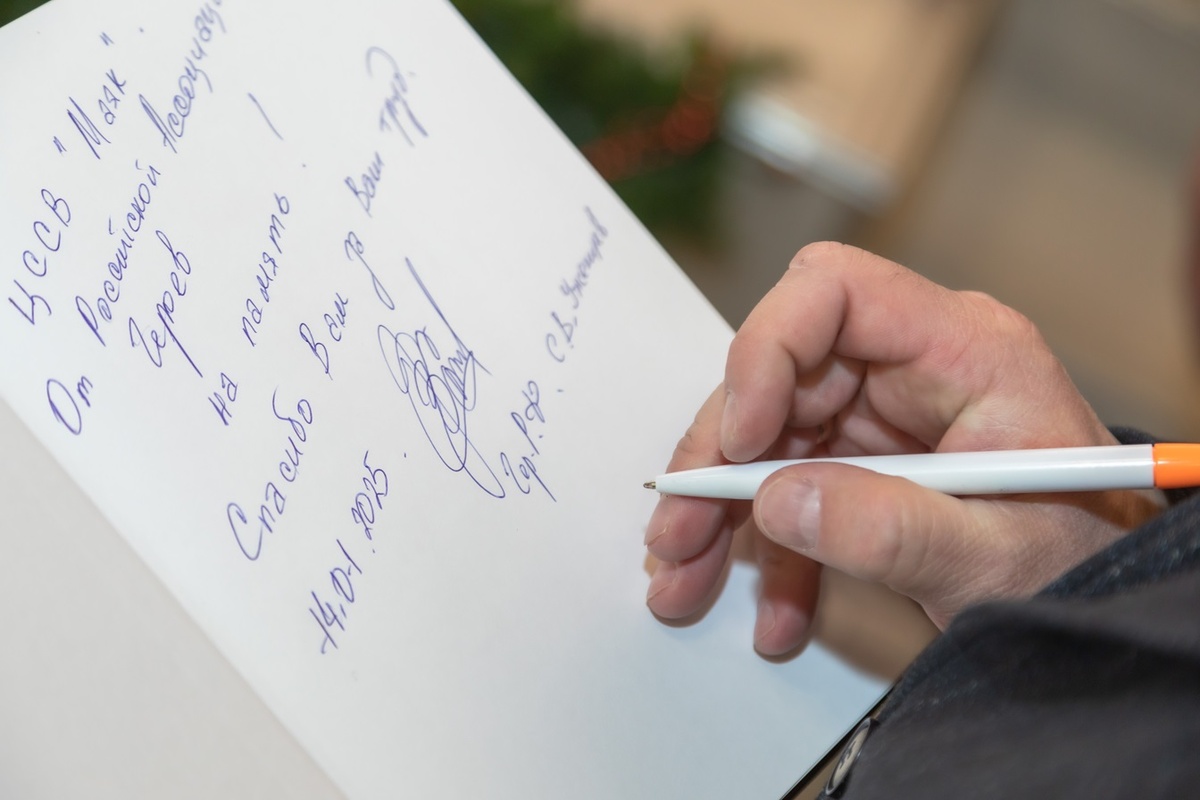 ЦССВ "Маяк".
От Российской Ассоциац
Героев
на память!
Спасибо Вам за Ваш труд.
14.01.2025.
Гер. Р.Ф. С.В.